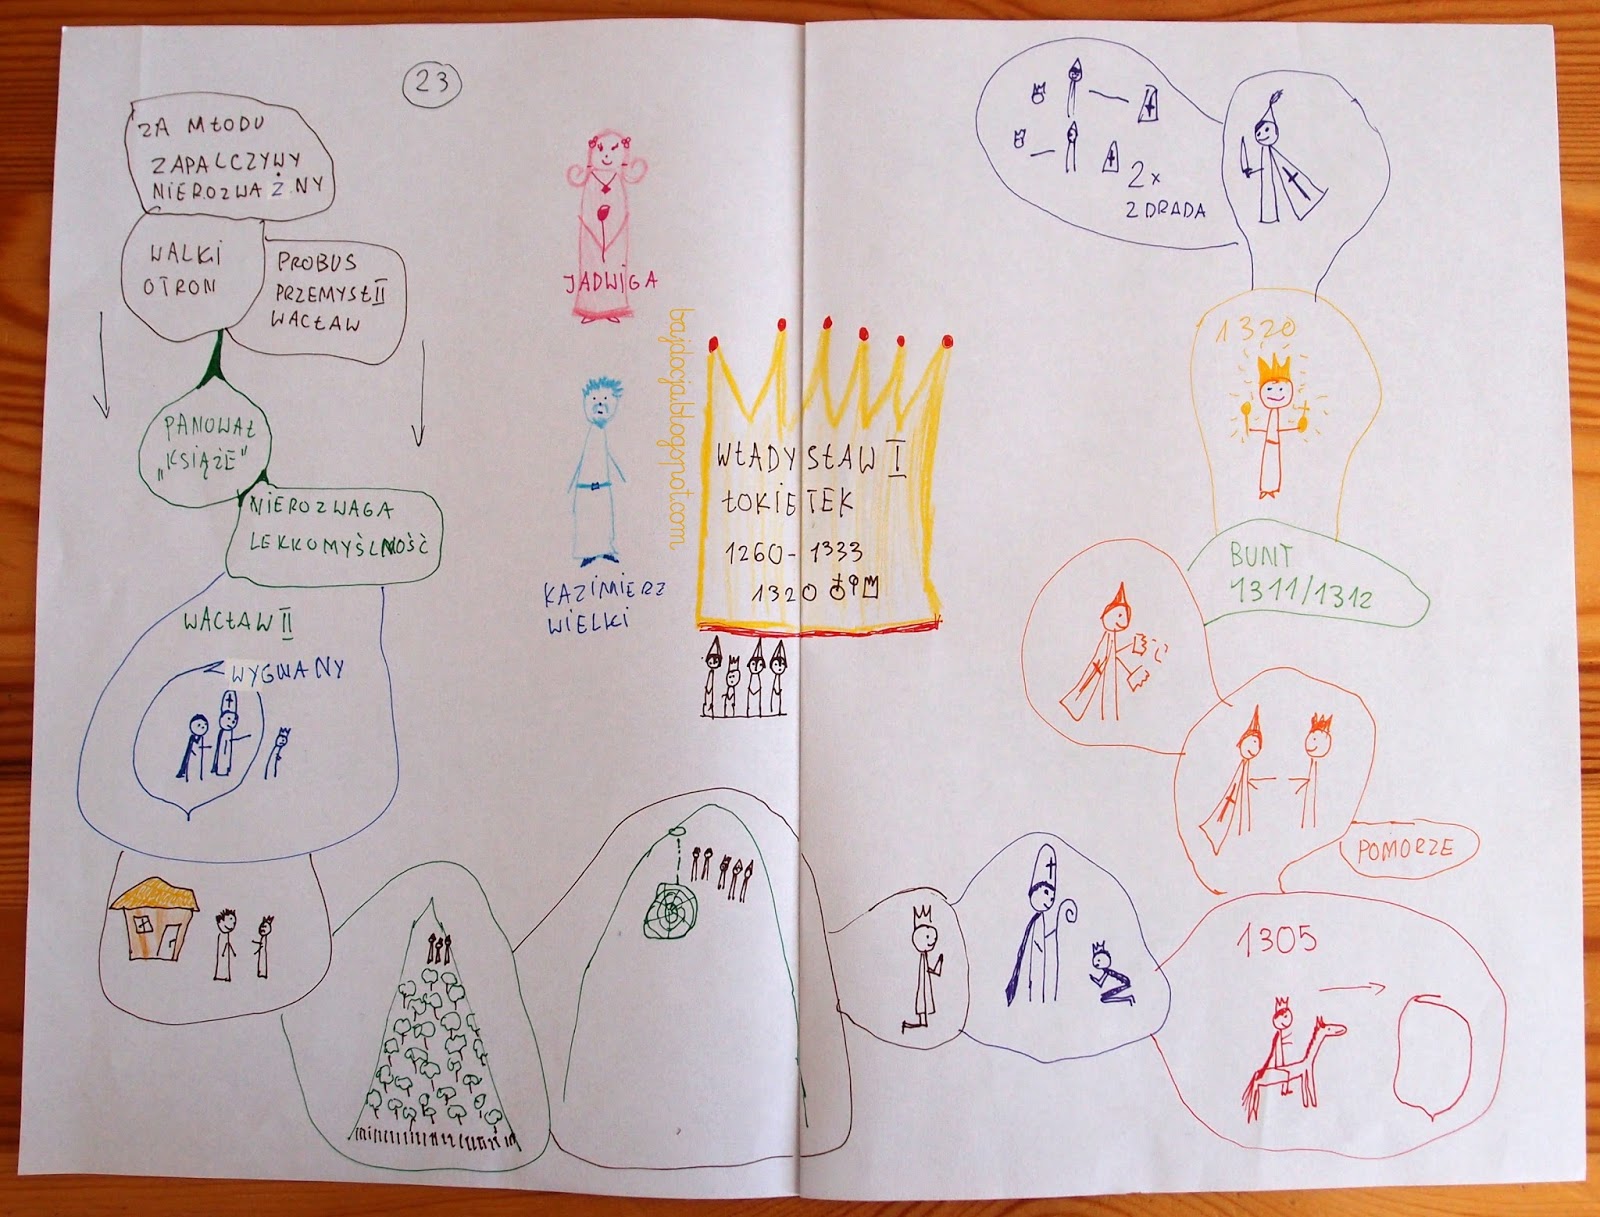 23
ZA MŁODU
ZAPALCZYWY
NIEROZWAŻNY
WALKI
O TRON
PROBUS
PRZEMYSŁ II
WACŁAW
PANOWAŁ
„KSIĄŻE”
NIEROZWAGA
LEKKOMYŚLNOŚĆ
WACŁAW II
WYGNANY
JADWIGA
KAZIMIERZ
WIELKI
bajdocja.blogspot.com
WŁADYSŁAW I
ŁOKIETEK
1260-1333
1320
2x
ZDRADA
1320
BUNT
1311/1312
POMORZE
1305